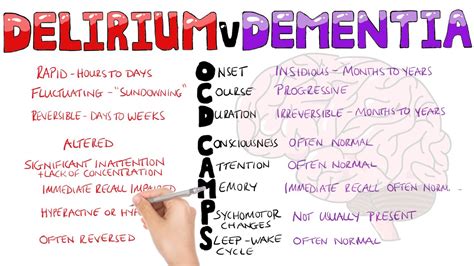 DELIRIUM V DEMENTIA
RAPID - HOURS TO DAYS ONSET INSIDIOUS - MONTHS TO YEARS
FLUCTUATING - "SUNDOWNING" COURSE PROGRESSIVE
REVERSIBLE - DAYS TO WEEKS DURATION IRREVERSIBLE - MONTHS TO YEARS
ALTERED CONSCIOUSNESS OFTEN NORMAL
SIGNIFICANT INATTENTION
+ LACK OF CONCENTRATION ATTENTION OFTEN NORMAL
IMMEDIATE RECALL IMPAIRED MEMORY IMMEDIATE RECALL OFTEN NORMA
HYPERACTIVE OR PSYCHOMOTOR
CHANGES NOT USUALLY PRESENT
OFTEN REVERSED SLEEP-WAKE
CYCLE OFTEN NORMAL